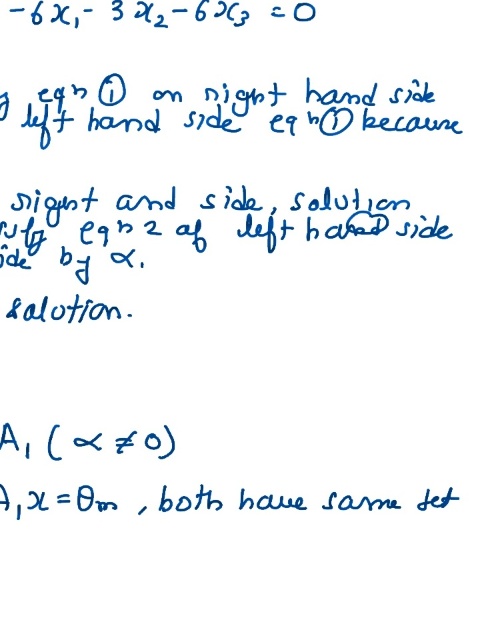 -6x₁- 3x₂-6x₃ =0
g eqⁿ ① on right hand side
left hand side eqⁿ① because
right and side, solution
eqⁿ 2 of left hand side
ide by α.
solution.
A₁ (α ≠ 0)
A₁x = θₘ , both have same set